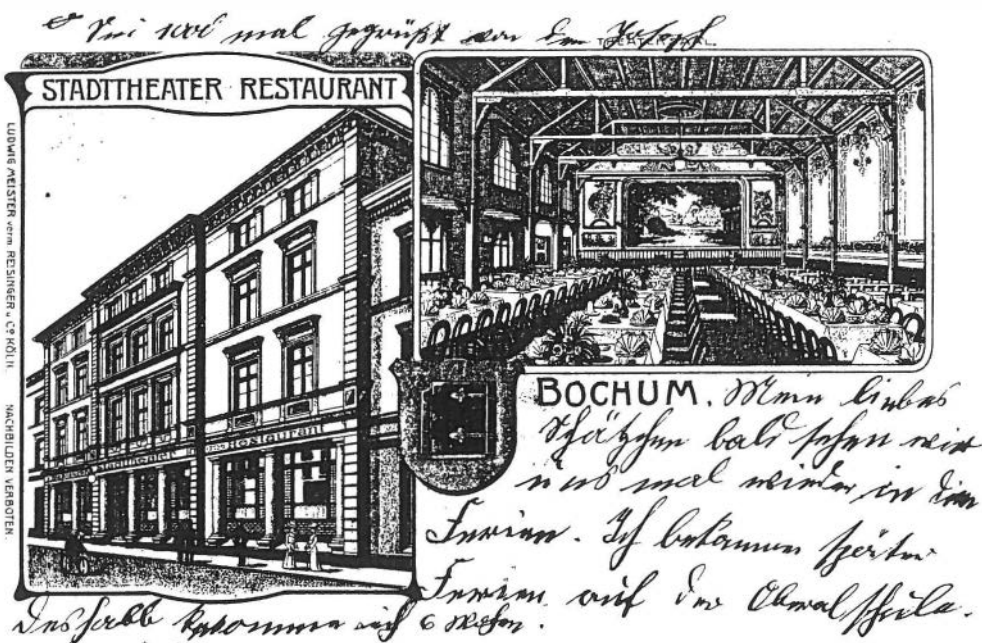 Sei 1000 mal gegrüßt von dem Joseph
THEATERSAAL.
STADTTHEATER RESTAURANT
LUDWIG MEISTER verm REISINGER u. Cº KÖLN. NACHBILDEN VERBOTEN.
Stadttheater Restaurant
BOCHUM. Mein liebes
Schätzchen bald sehen wir
uns mal wieder in den
Ferien. Ich bekomme später
Ferien auf der schule.
Deshalb bekomme ich 6 Wochen.